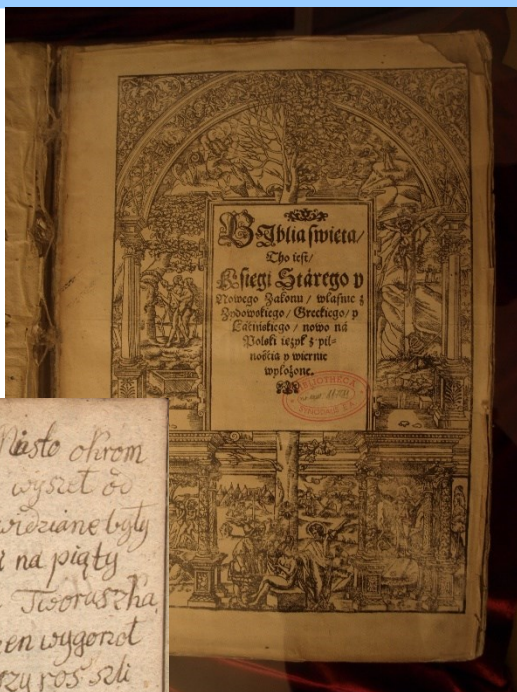 Biblia święta/
Tho iest/
Księgi Stárego y
Nowego Zakonu/ własnie z
Zydowskiego/ Greckiego/ y
Łacińskiego/ nowo ná
Polski ięzyk z pil-
nością y wiernie
wyłożone.
BIBLIOTHECA
Miasto okrom
wyszeł od
widziane były
na piąty
Tworuszka,
en wygonoł
rzy rosszli